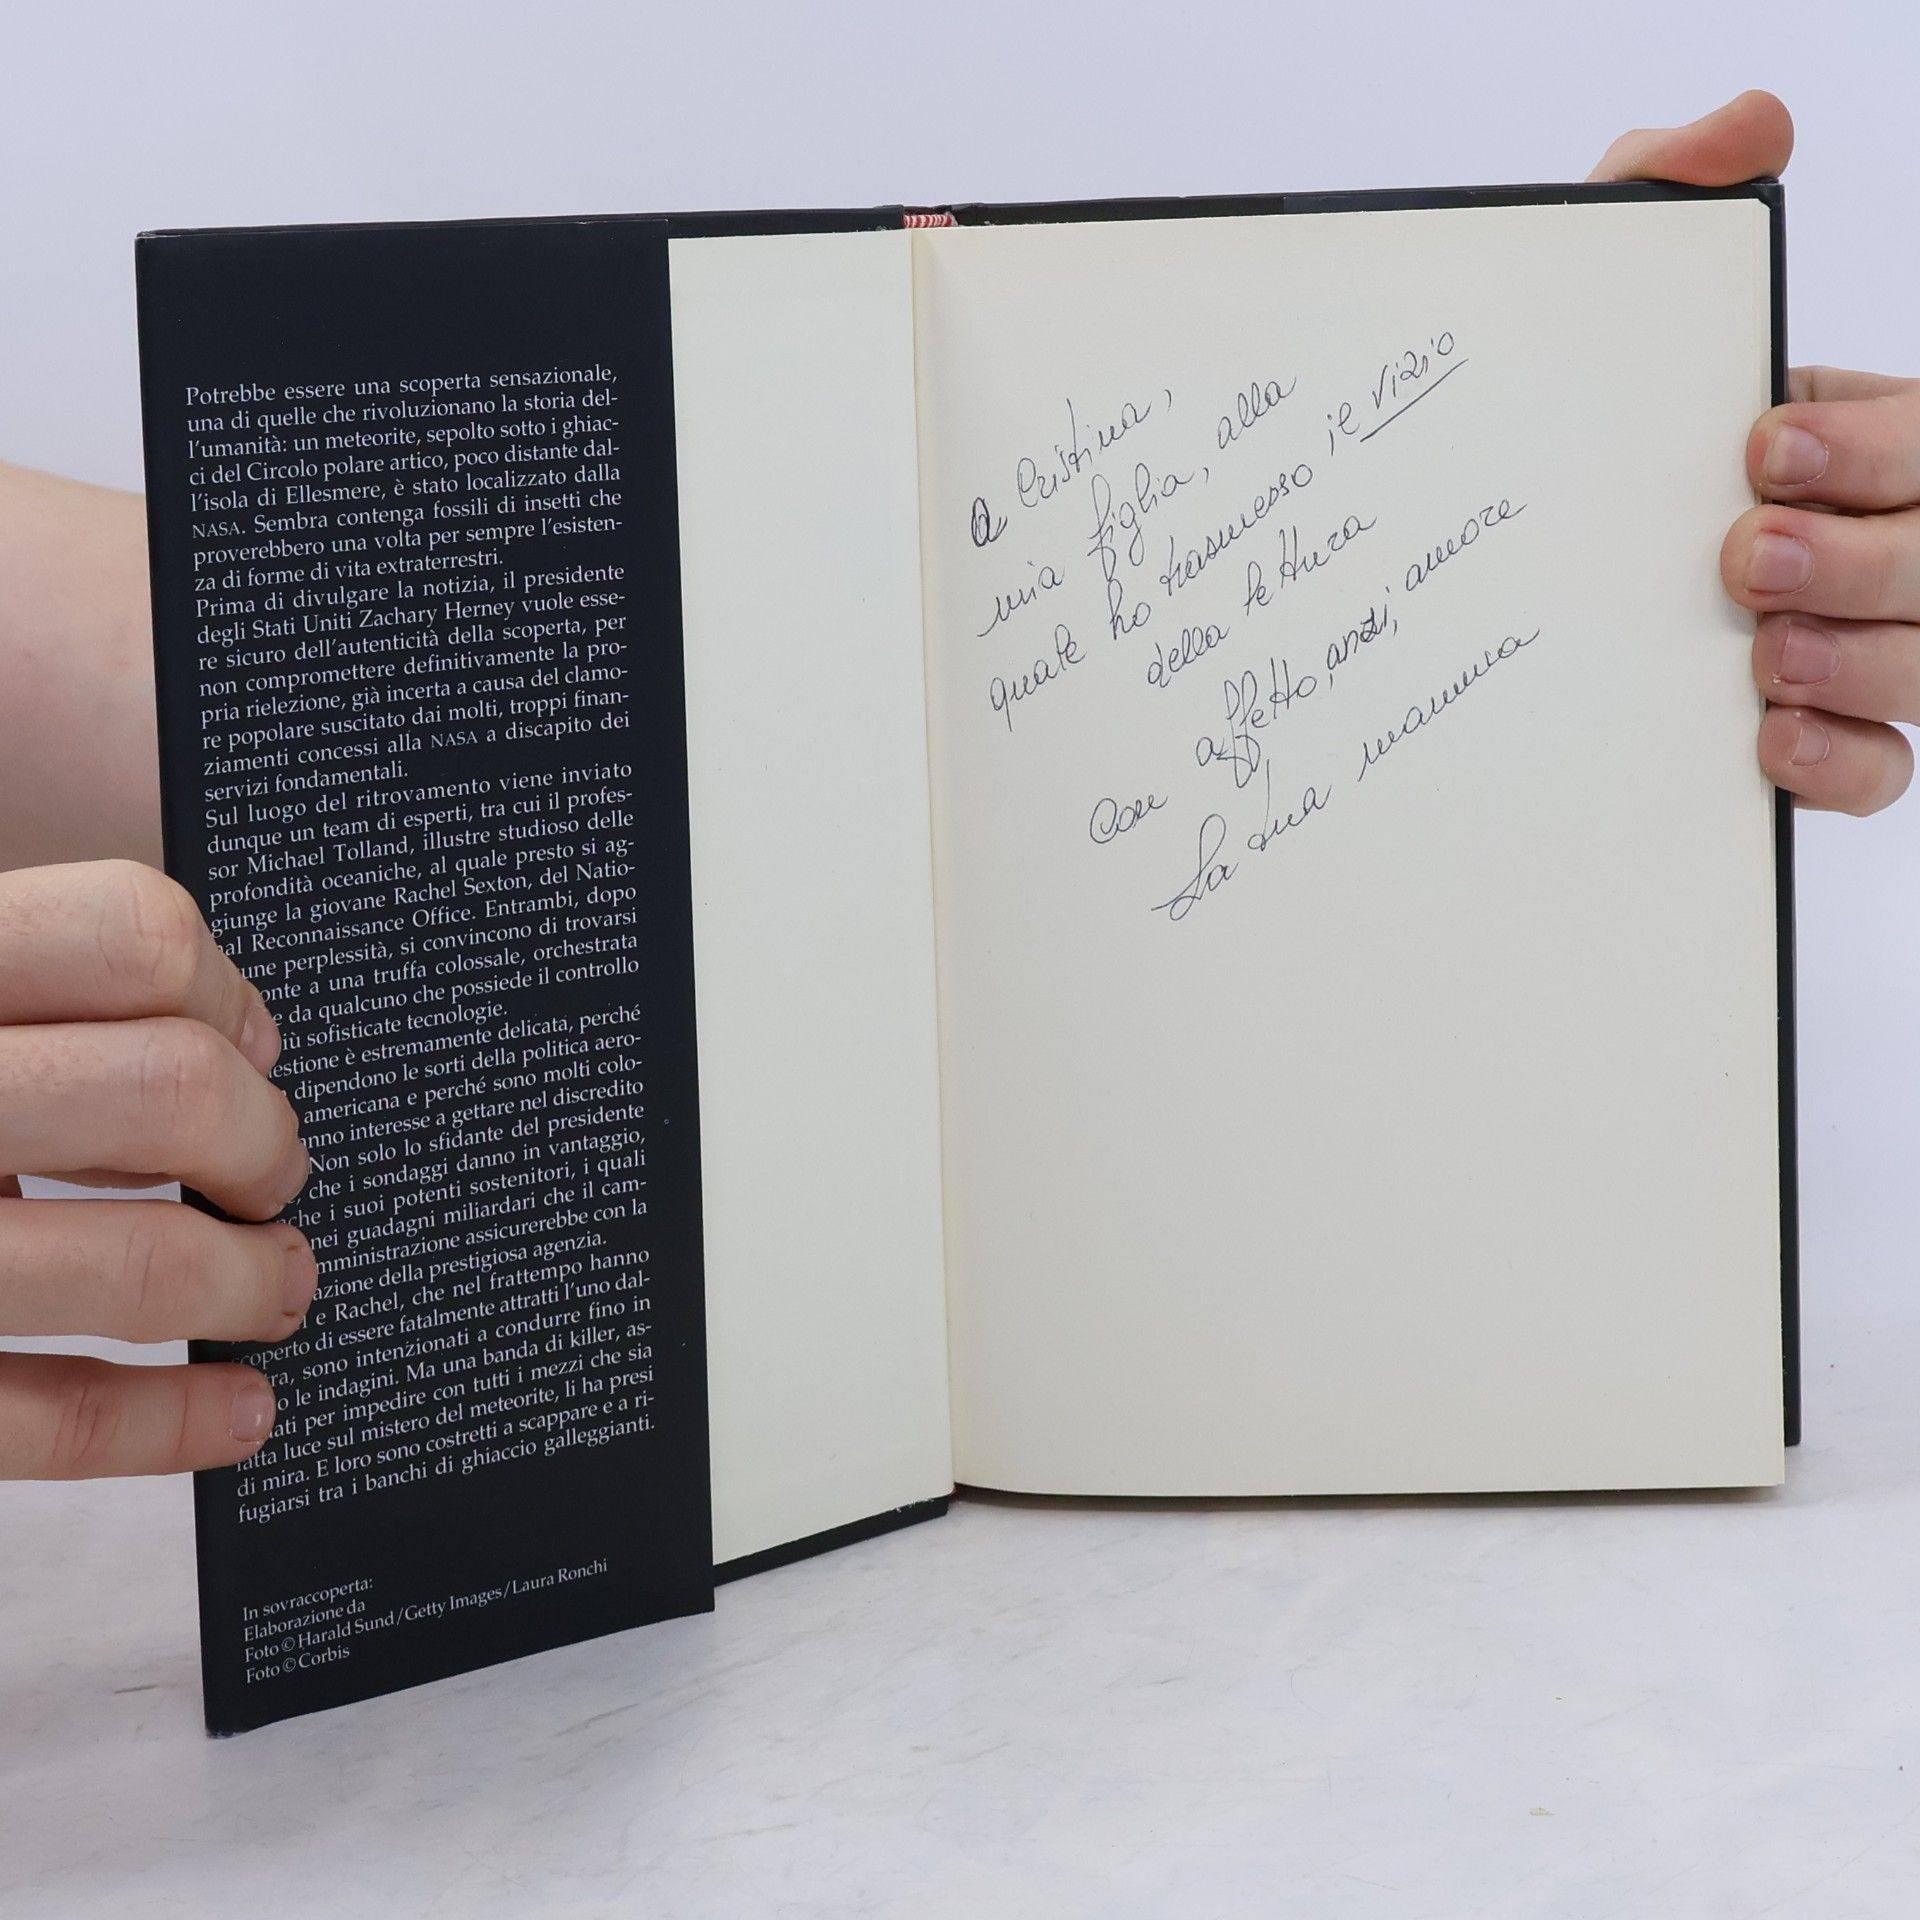 Potrebbe essere una scoperta sensazionale,
una di quelle che rivoluzionano la storia del-
l'umanità: un meteorite, sepolto sotto i ghiac-
ci del Circolo polare artico, poco distante dal-
l'isola di Ellesmere, è stato localizzato dalla
NASA. Sembra contenga fossili di insetti che
proverebbero una volta per sempre l'esisten-
za di forme di vita extraterrestri.
Prima di divulgare la notizia, il presidente
degli Stati Uniti Zachary Herney vuole esse-
re sicuro dell'autenticità della scoperta, per
non compromettere definitivamente la pro-
pria rielezione, già incerta a causa del clamo-
re popolare suscitato dai molti, troppi finan-
ziamenti concessi alla NASA a discapito dei
servizi fondamentali.
Sul luogo del ritrovamento viene inviato
dunque un team di esperti, tra cui il profes-
sor Michael Tolland, illustre studioso delle
profondità oceaniche, al quale presto si ag-
giunge la giovane Rachel Sexton, del Natio-
nal Reconnaissance Office. Entrambi, dopo
une perplessità, si convincono di trovarsi
onte a una truffa colossale, orchestrata
e da qualcuno che possiede il controllo
iù sofisticate tecnologie.
estione è estremamente delicata, perché
dipendono le sorti della politica aero-
americana e perché sono molti colo-
nno interesse a gettare nel discredito
Non solo lo sfidante del presidente
che i sondaggi danno in vantaggio,
che i suoi potenti sostenitori, i quali
nei guadagni miliardari che il cam-
mministrazione assicurerebbe con la
azione della prestigiosa agenzia.
e Rachel, che nel frattempo hanno
coperto di essere fatalmente attratti l'uno dal-
tra, sono intenzionati a condurre fino in
o le indagini. Ma una banda di killer, as-
ati per impedire con tutti i mezzi che sia
fatta luce sul mistero del meteorite, li ha presi
di mira. E loro sono costretti a scappare e a ri-
fugiarsi tra i banchi di ghiaccio galleggianti.
In sovraccoperta:
Elaborazione da
Foto © Harald Sund/Getty Images/Laura Ronchi
Foto © Corbis
a Cristina,
mia figlia, alla
quale ho trasmesso il vizio
della lettura
con affetto, anzi, amore
La tua mamma